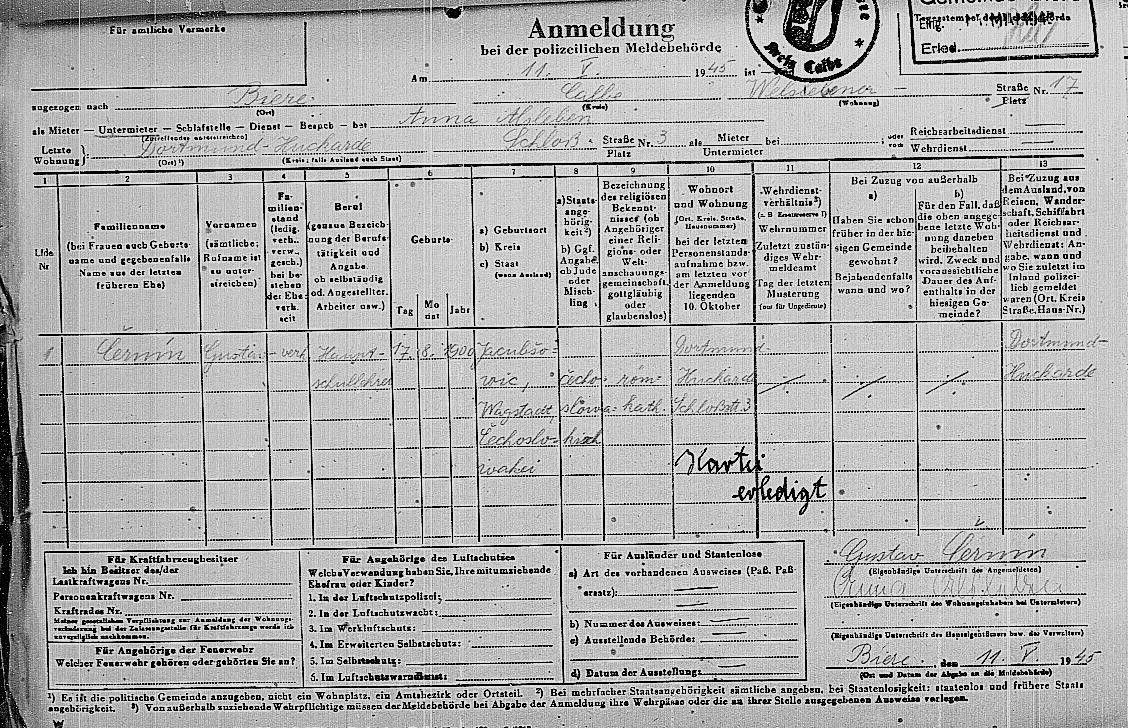 Für amtliche Vermerke
Anmeldung
bei der polizeilichen Meldebehörde
Am 11. V. 1945 ist
Kreis Calbe
Gemeinde
Tagesstempel der Meldebehörde
Eing.
Erled.
zugezogen nach Biere Calbe Welslebener - Straße Nr. 17
(Ort) (Kreis) (Wohnung) Platz
als Mieter — Untermieter — Schlafstelle — Dienst — Besuch — bei Anna Alsleben
(Zutreffendes unterstreichen)
Letzte Wohnung }: Dortmund-Huckarde Schloß- Straße Nr. 3 als Mieter bei oder vom Reichsarbeitsdienst
(Ort) ¹) (Kreis; falls Ausland auch Staat) Platz Untermieter Wehrdienst
1 2 3 4 5 6 7 8 9 10 11 12 13
Lfde Nr
Familienname
(bei Frauen auch Geburts-
name und gegebenenfalls
Name aus der letzten
früheren Ehe)
Vornamen
(sämtliche;
Rufname ist
zu unter-
streichen)
Fa-
milien-
stand
(ledig,
verh.,
verw.,
gesch.)
bei be-
stehen
der Ehe:
verh.
seit
Beruf
(genaue Bezeich-
nung der Berufs-
tätigkeit und
Angabe,
ob selbständig
od. Angestellter,
Arbeiter usw.)
Geburts-
Tag Mo nat Jahr
a) Geburtsort
b) Kreis
c) Staat
(wenn Ausland)
a) Staats-
ange-
hörig-
keit²)
b) Ggf.
Angabe,
ob Jude
oder
Misch-
ling
Bezeichnung
des religiösen
Bekennt-
nisses (ob
Angehöriger
einer Reli-
gions- oder
Welt-
anschauungs-
gemeinschaft,
gottgläubig
oder
glaubenslos)
Wohnort
und Wohnung
(Ort, Kreis, Straße,
Hausnummer)
bei der letzten
Personenstands-
aufnahme bzw.
am letzten vor
der Anmeldung
liegenden
10. Oktober
Wehrdienst-
verhältnis³)
(z. B. Ersatzreserve I)
Wehrnummer
Zuletzt zustän-
diges Wehr-
meldeamt
Tag der letzten
Musterung
(nur für Ungediente)
Bei Zuzug von außerhalb
a)
Haben Sie schon
früher in der hie-
sigen Gemeinde
gewohnt?
Bejahendenfalls
wann und wo?
b)
Für den Fall, daß
die oben angege-
bene letzte Woh-
nung daneben
beibehalten
wird. Zweck und
voraussichtliche
Dauer des Auf-
enthalts in der
hiesigen Ge-
meinde?
Bei Zuzug aus
dem Ausland, von
Reisen, Wander-
schaft, Schiffahrt
oder Reichsar-
beitsdienst und
Wehrdienst: An-
gabe, wann und
wo Sie zuletzt im
Inland polizei-
lich gemeldet
waren (Ort, Kreis
Straße, Haus-Nr.)
1 Černin Gustav verh Haupt- 17. 8. 1909 Jacubšo- Dortmund Dortmund-
schullehrer wic, čecho- röm- Huckarde Huckarde
Wagstadt, slowa- kath. Schloßstr. 3
Čechoslo- kisch
wakei
Kartei
erledigt
Für Kraftfahrzeugbesitzer
Ich bin Besitzer des/der
Lastkraftwagens Nr.
Personenkraftwagens Nr.
Kraftrades Nr.
Meiner gesetzlichen Verpflichtung zur Anmeldung der Wohnungs-
veränderung bei der Zulassungsstelle für Kraftfahrzeuge werde ich
unverzüglich nachkommen.
Für Angehörige der Feuerwehr
Welcher Feuerwehr gehören oder gehörten Sie an?
Für Angehörige des Luftschutzes
Welche Verwendung haben Sie, Ihre mitumziehende
Ehefrau oder Kinder?
1. In der Luftschutzpolizei:
2. In der Luftschutzwacht:
3. Im Werkluftschutz:
4. Im Erweiterten Selbstschutz:
5. Im Selbstschutz:
6. Im Luftschutzwarndienst:
Für Ausländer und Staatenlose
a) Art des vorhandenen Ausweises (Paß, Paß-
ersatz):
b) Nummer des Ausweises:
c) Ausstellende Behörde:
d) Datum der Ausstellung:
Gustav Černin
(Eigenhändige Unterschrift des Angemeldeten)
Anna Alsleben
(Eigenhändige Unterschrift des Wohnungsinhabers bei Untermietern)
(Eigenhändige Unterschrift des Hauseigentümers bzw. des Verwalters)
Biere, den 11. V. 1945
(Ort und Datum der Abgabe an die Meldebehörde)
¹) Es ist die politische Gemeinde anzugeben, nicht ein Wohnplatz, ein Amtsbezirk oder Ortsteil. ²) Bei mehrfacher Staatsangehörigkeit sämtliche angeben, bei Staatenlosigkeit: staatenlos und frühere Staats-
angehörigkeit. ³) Von außerhalb zuziehende Wehrpflichtige müssen der Meldebehörde bei Abgabe der Anmeldung ihre Wehrpässe oder die an ihrer Stelle ausgegebenen Ausweise vorlegen.